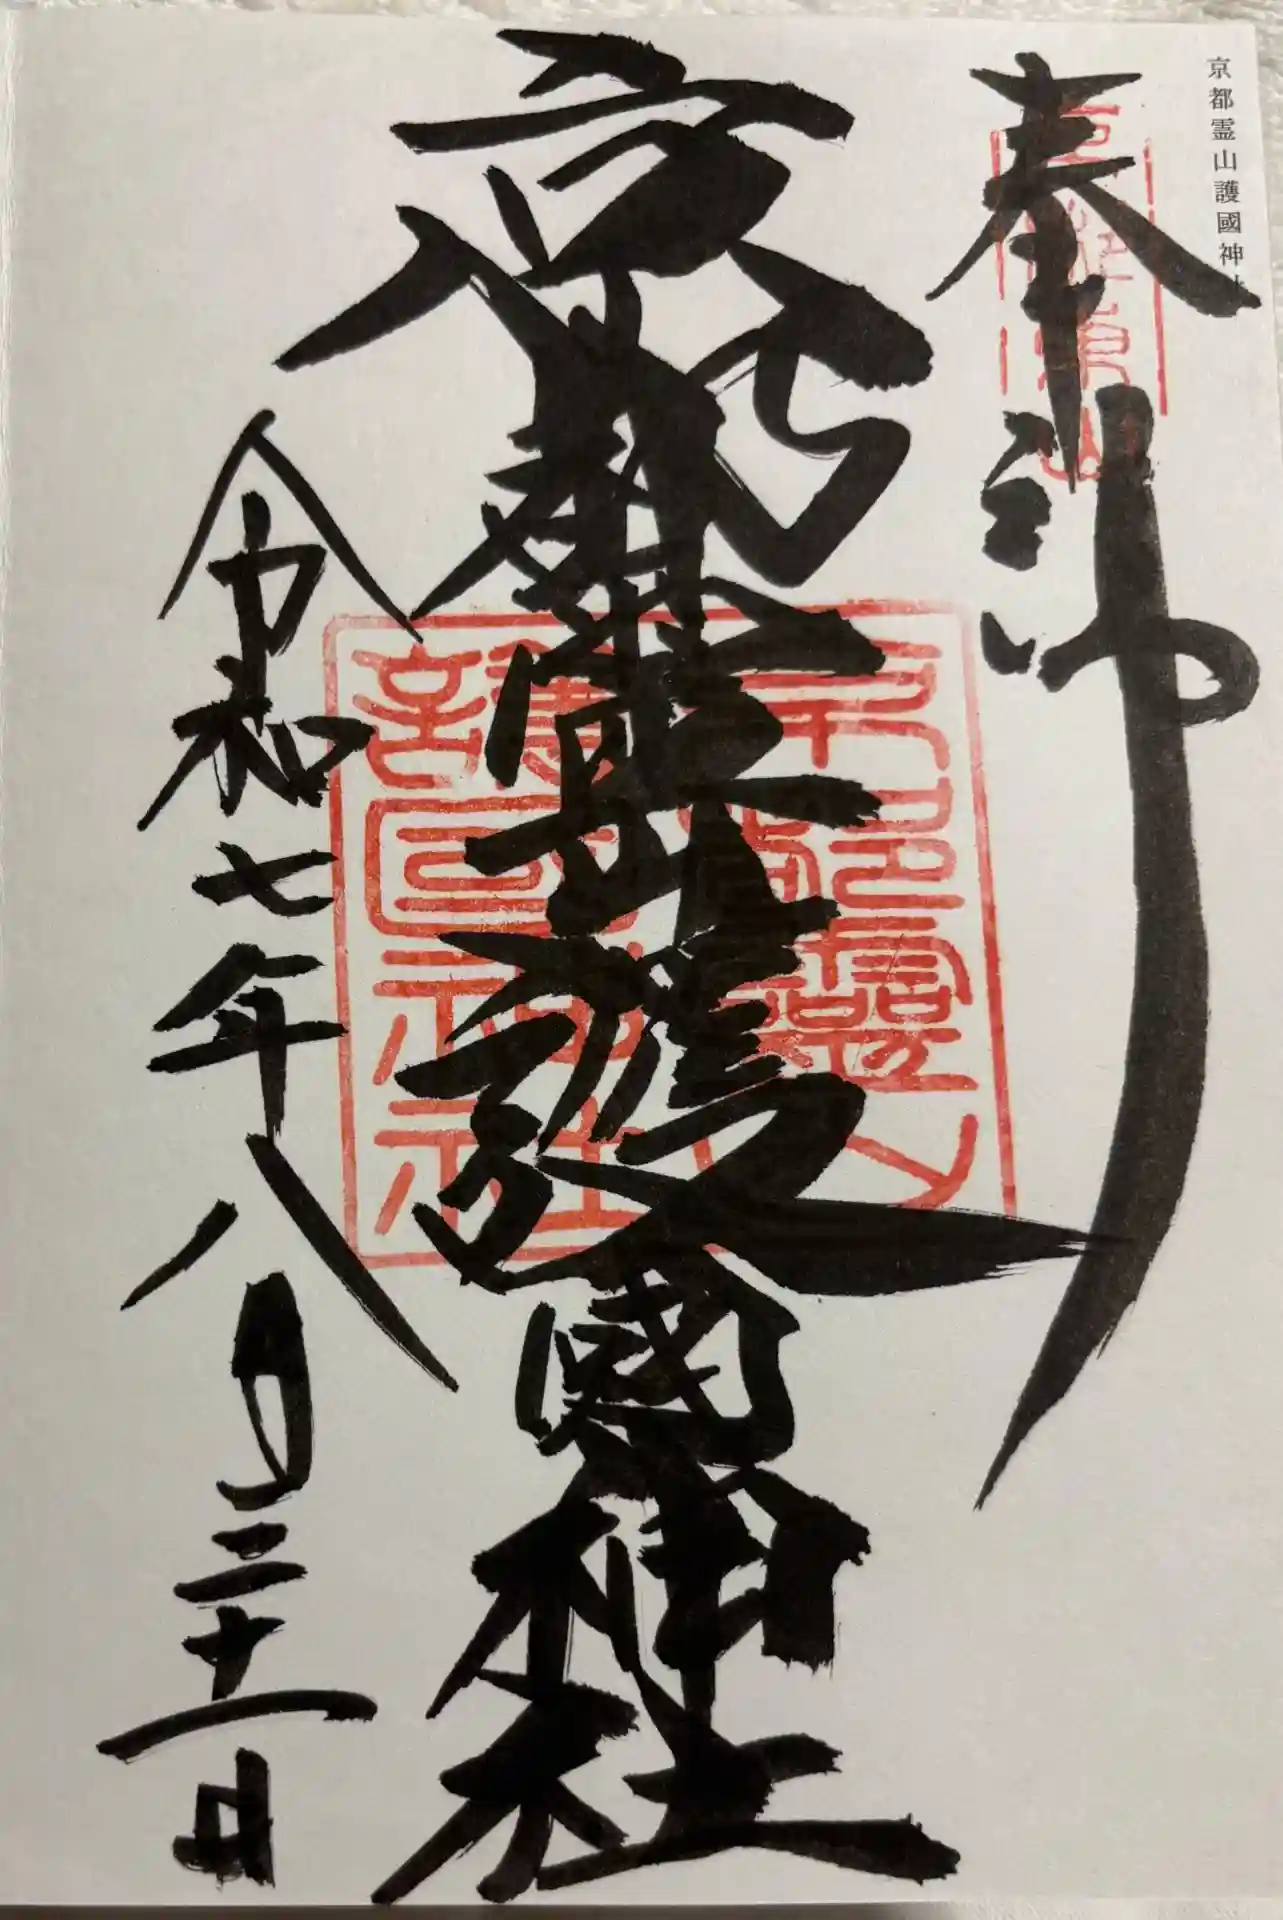 京都霊山護國神社
奉拝
京都霊山護國神社
令和七年八月三十一日
京都霊山護國神社